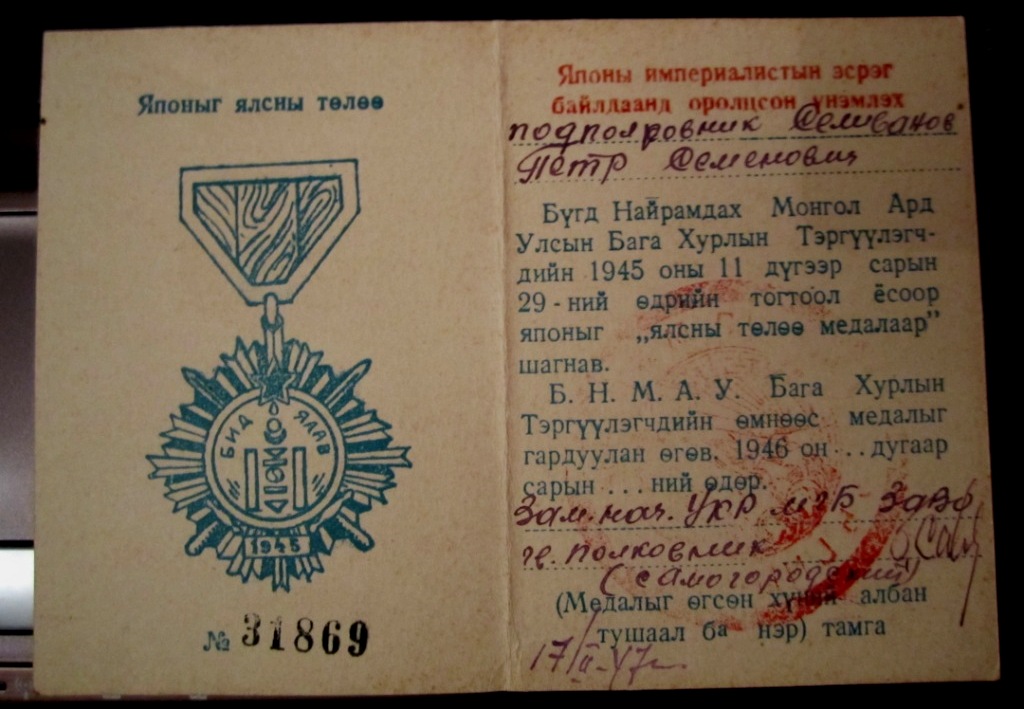 Японыг ялсны төлөө
БИД ЯЛАВ
1945
№ 31869
Японы империалистын эсрэг
байлдаанд оролцсон үнэмлэх
подполковник Селиванов
Петр Семенович
Бүгд Найрамдах Монгол Ард
Улсын Бага Хурлын Тэргүүлэгч-
дийн 1945 оны 11 дүгээр сарын
29-ний өдрийн тогтоол ёсоор
японыг „ялсны төлөө медалаар"
шагнав.
Б. Н. М. А. У. Бага Хурлын
Тэргүүлэгчдийн өмнөөс медалыг
гардуулан өгөв. 1946 он .. дугаар
сарын ... ний өдөр.
Зам. нач. УКР МГБ ЗабВО
гв. полковник
(Самогородский)
(Медалыг өгсөн хүний албан
тушаал ба нэр) тамга
17/II-47г.